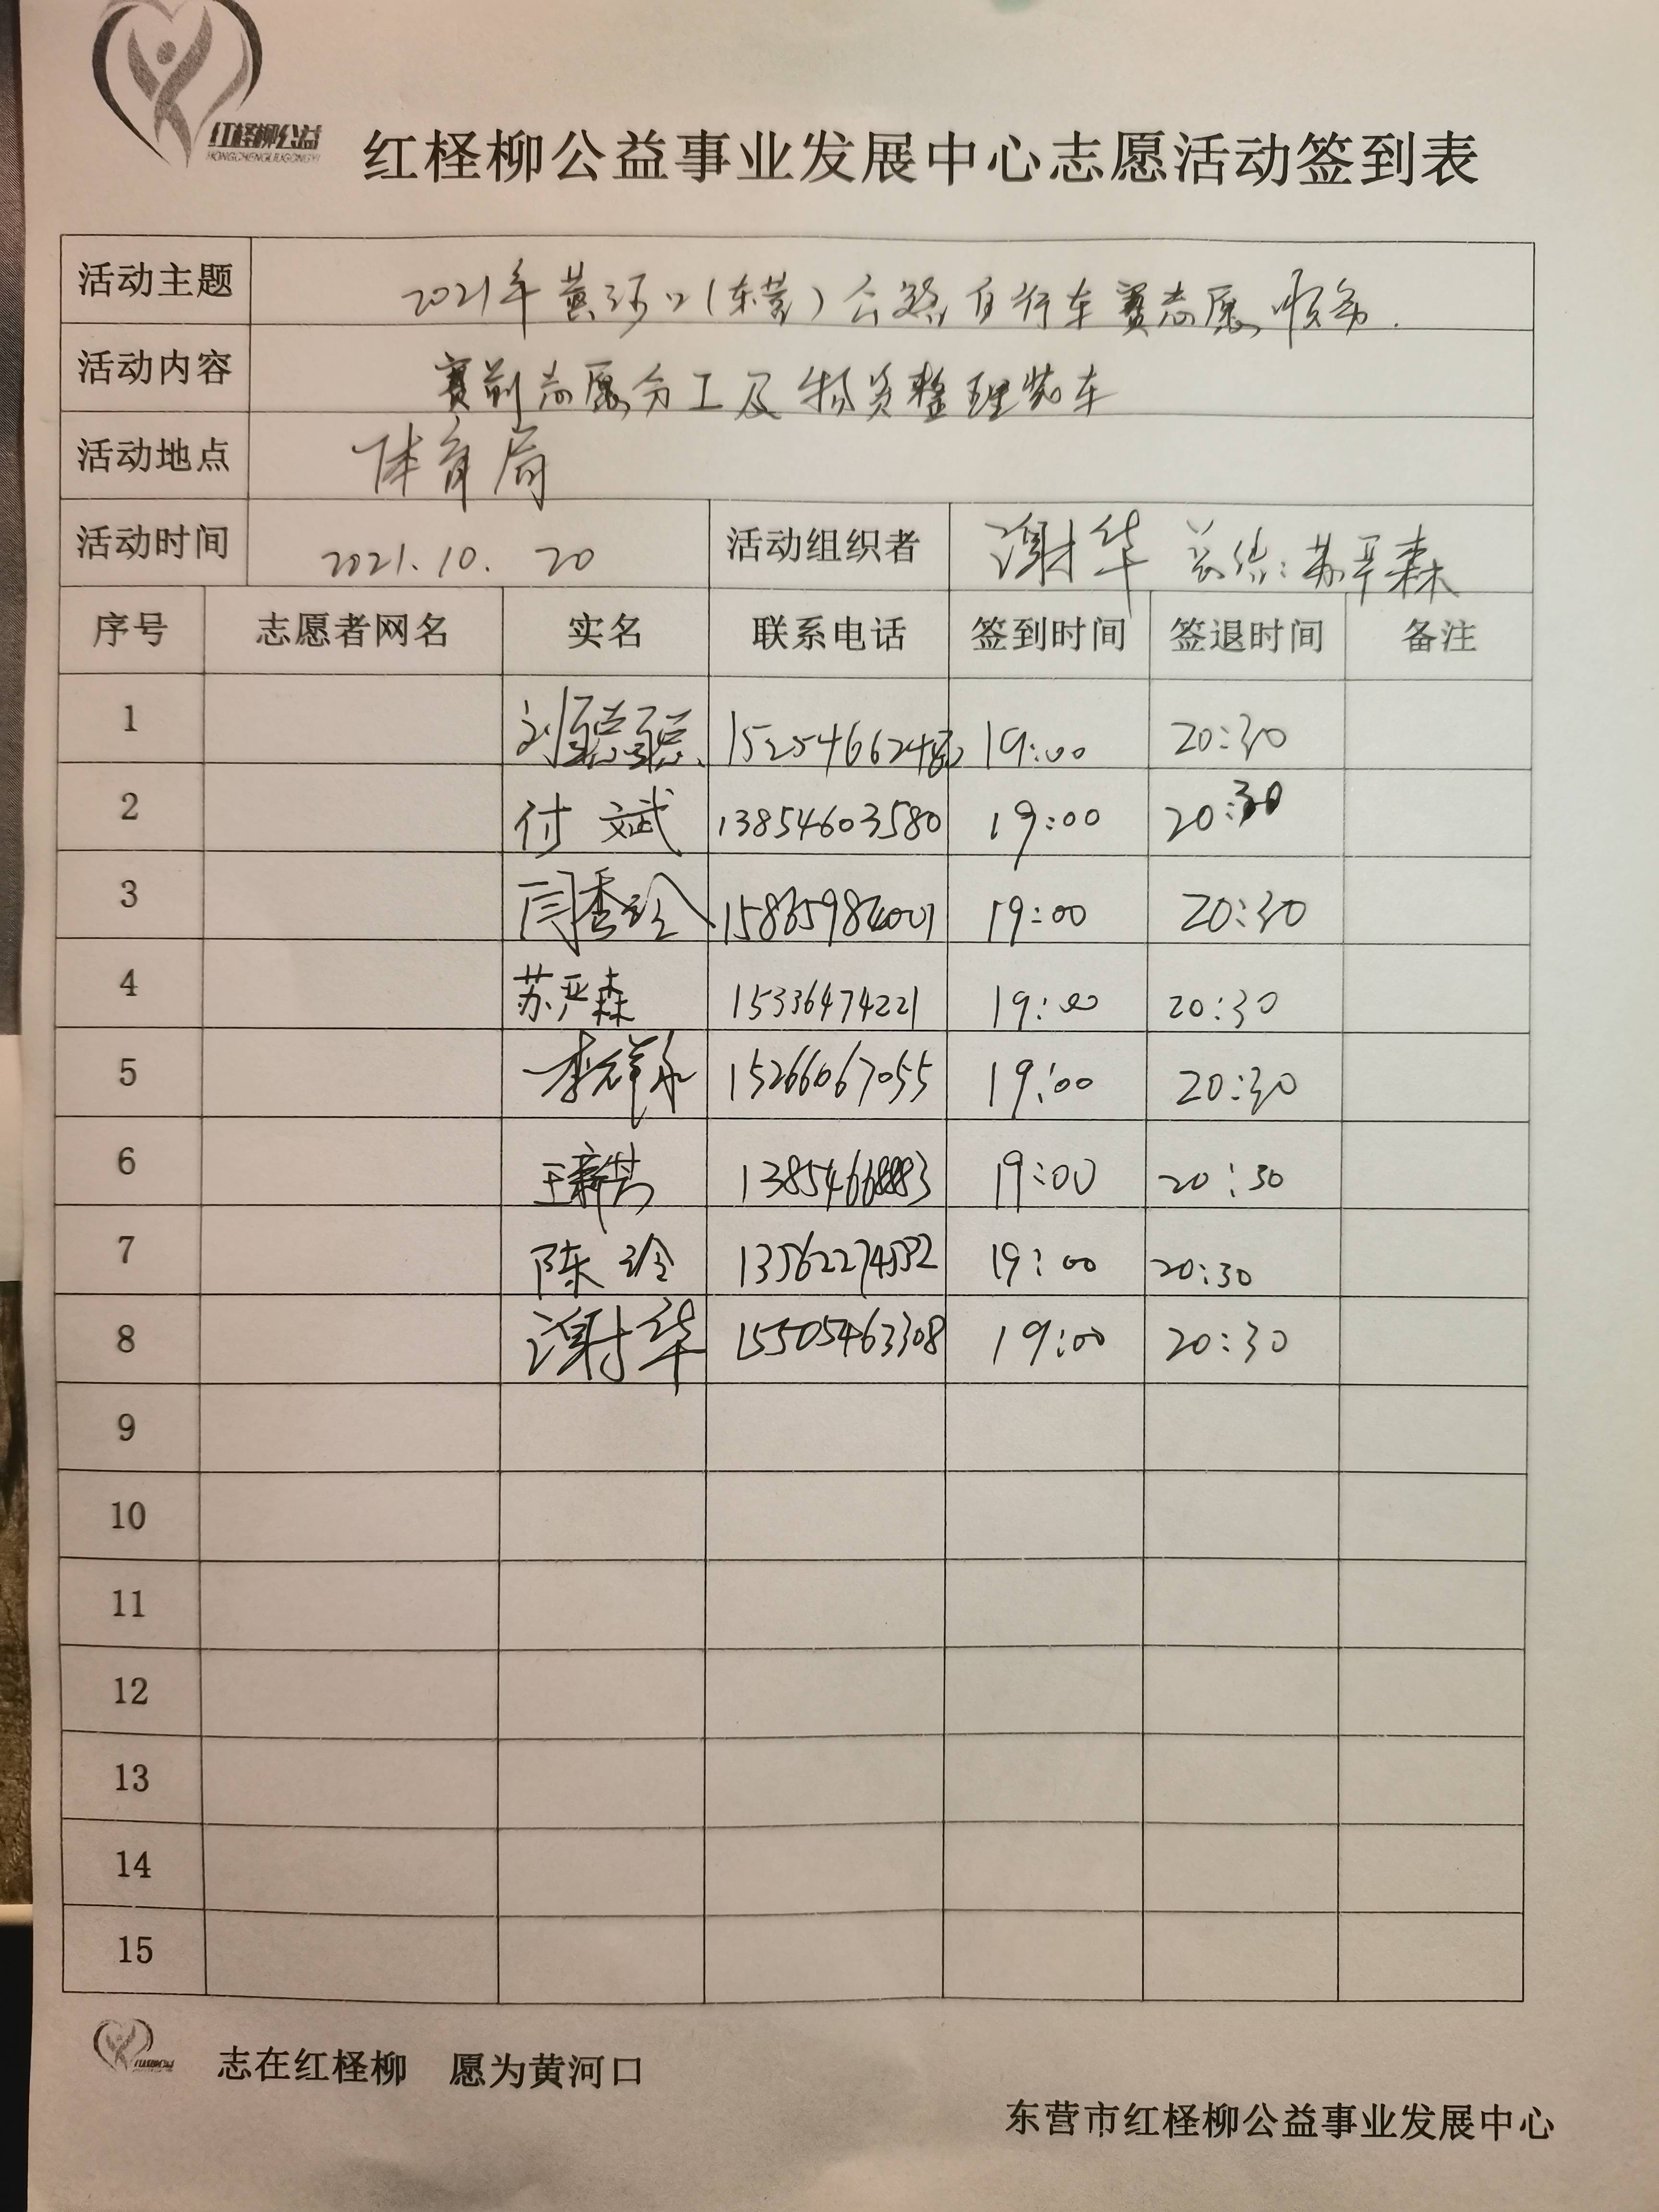 红柽柳公益
HONGCHENGLIUGONGYI
红柽柳公益事业发展中心志愿活动签到表
活动主题 2021年黄河口(东营)公路自行车赛志愿服务.
活动内容 赛前志愿分工及物资整理装车
活动地点 体育局
活动时间 2021.10. 20 活动组织者 谢华 总结:苏严森
序号 志愿者网名 实名 联系电话 签到时间 签退时间 备注
1 刘聪聪 19:00 20:30
2 付文斌 13854603580 19:00 20:30
3 闫秀玲 19:00 20:30
4 苏严森 15336474221 19:00 20:30
5 李祥永 15266067055 19:00 20:30
6 王新芳 19:00 20:30
7 陈玲 13562274552 19:00 20:30
8 谢华 15505463308 19:00 20:30
9
10
11
12
13
14
15
志在红柽柳 愿为黄河口
东营市红柽柳公益事业发展中心